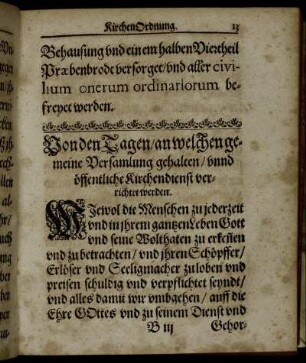 KirchenOrdnung. 13
Behausung vnd einem halben Viertheil
Præbenbrodt versorget/ vnd aller civi-
lium onerum ordinariorum be-
freyet werden.
Von den Tagen/ an welchen ge-
meine Versamlung gehalten/ vnnd
öffentliche Kirchendienst ver-
richtet werden.
WJewol die Menschen zu jederzeit
vnd in jhrem gantzen Leben Gott
vnd seine Wolthaten zu erkeñen
vnd zu betrachten/ vnd jhren Schöpffer/
Erlöser vnd Seeligmacher zu loben vnd
preisen schuldig vnd verpflichtet seyndt/
vnd alles damit wir vmbgehen/ auff die
Ehre GOttes vnd zu seinem Dienst vnd
B iij Gehor-